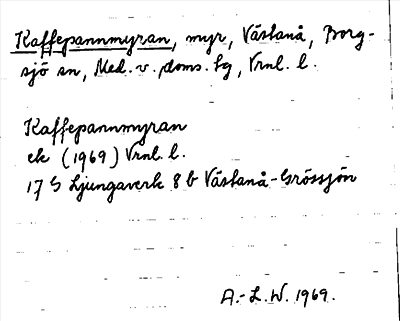 Kaffepannmyran, myr, Västanå, Borg-
sjö sn, Med. v. doms. tg, Vrnl. l.
Kaffepannmyran
ek (1969) Vrnl. l.
17 G Ljungaverk 8 b Västanå-Grössjön
A.-L.W. 1969.